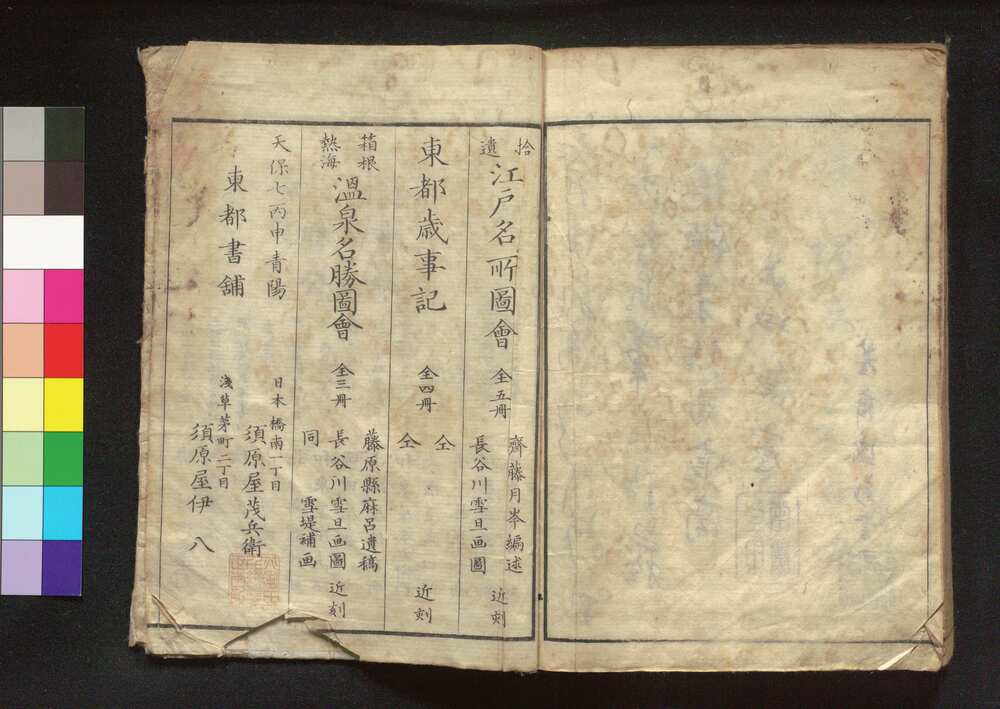 拾遺 江戸名所圖會 全五冊 齊藤月岑編述 長谷川雪旦画圖 近刻
東都歳事記 全四冊 仝 仝 近刻
箱根熱海 溫泉名勝圖會 全三冊 藤原縣麻呂遺稿 長谷川雪旦画圖 同 雪堤補画 近刻
天保七丙申青陽
東都書舗
日本橋南一丁目
須原屋茂兵衛
淺草茅町二丁目
須原屋伊八